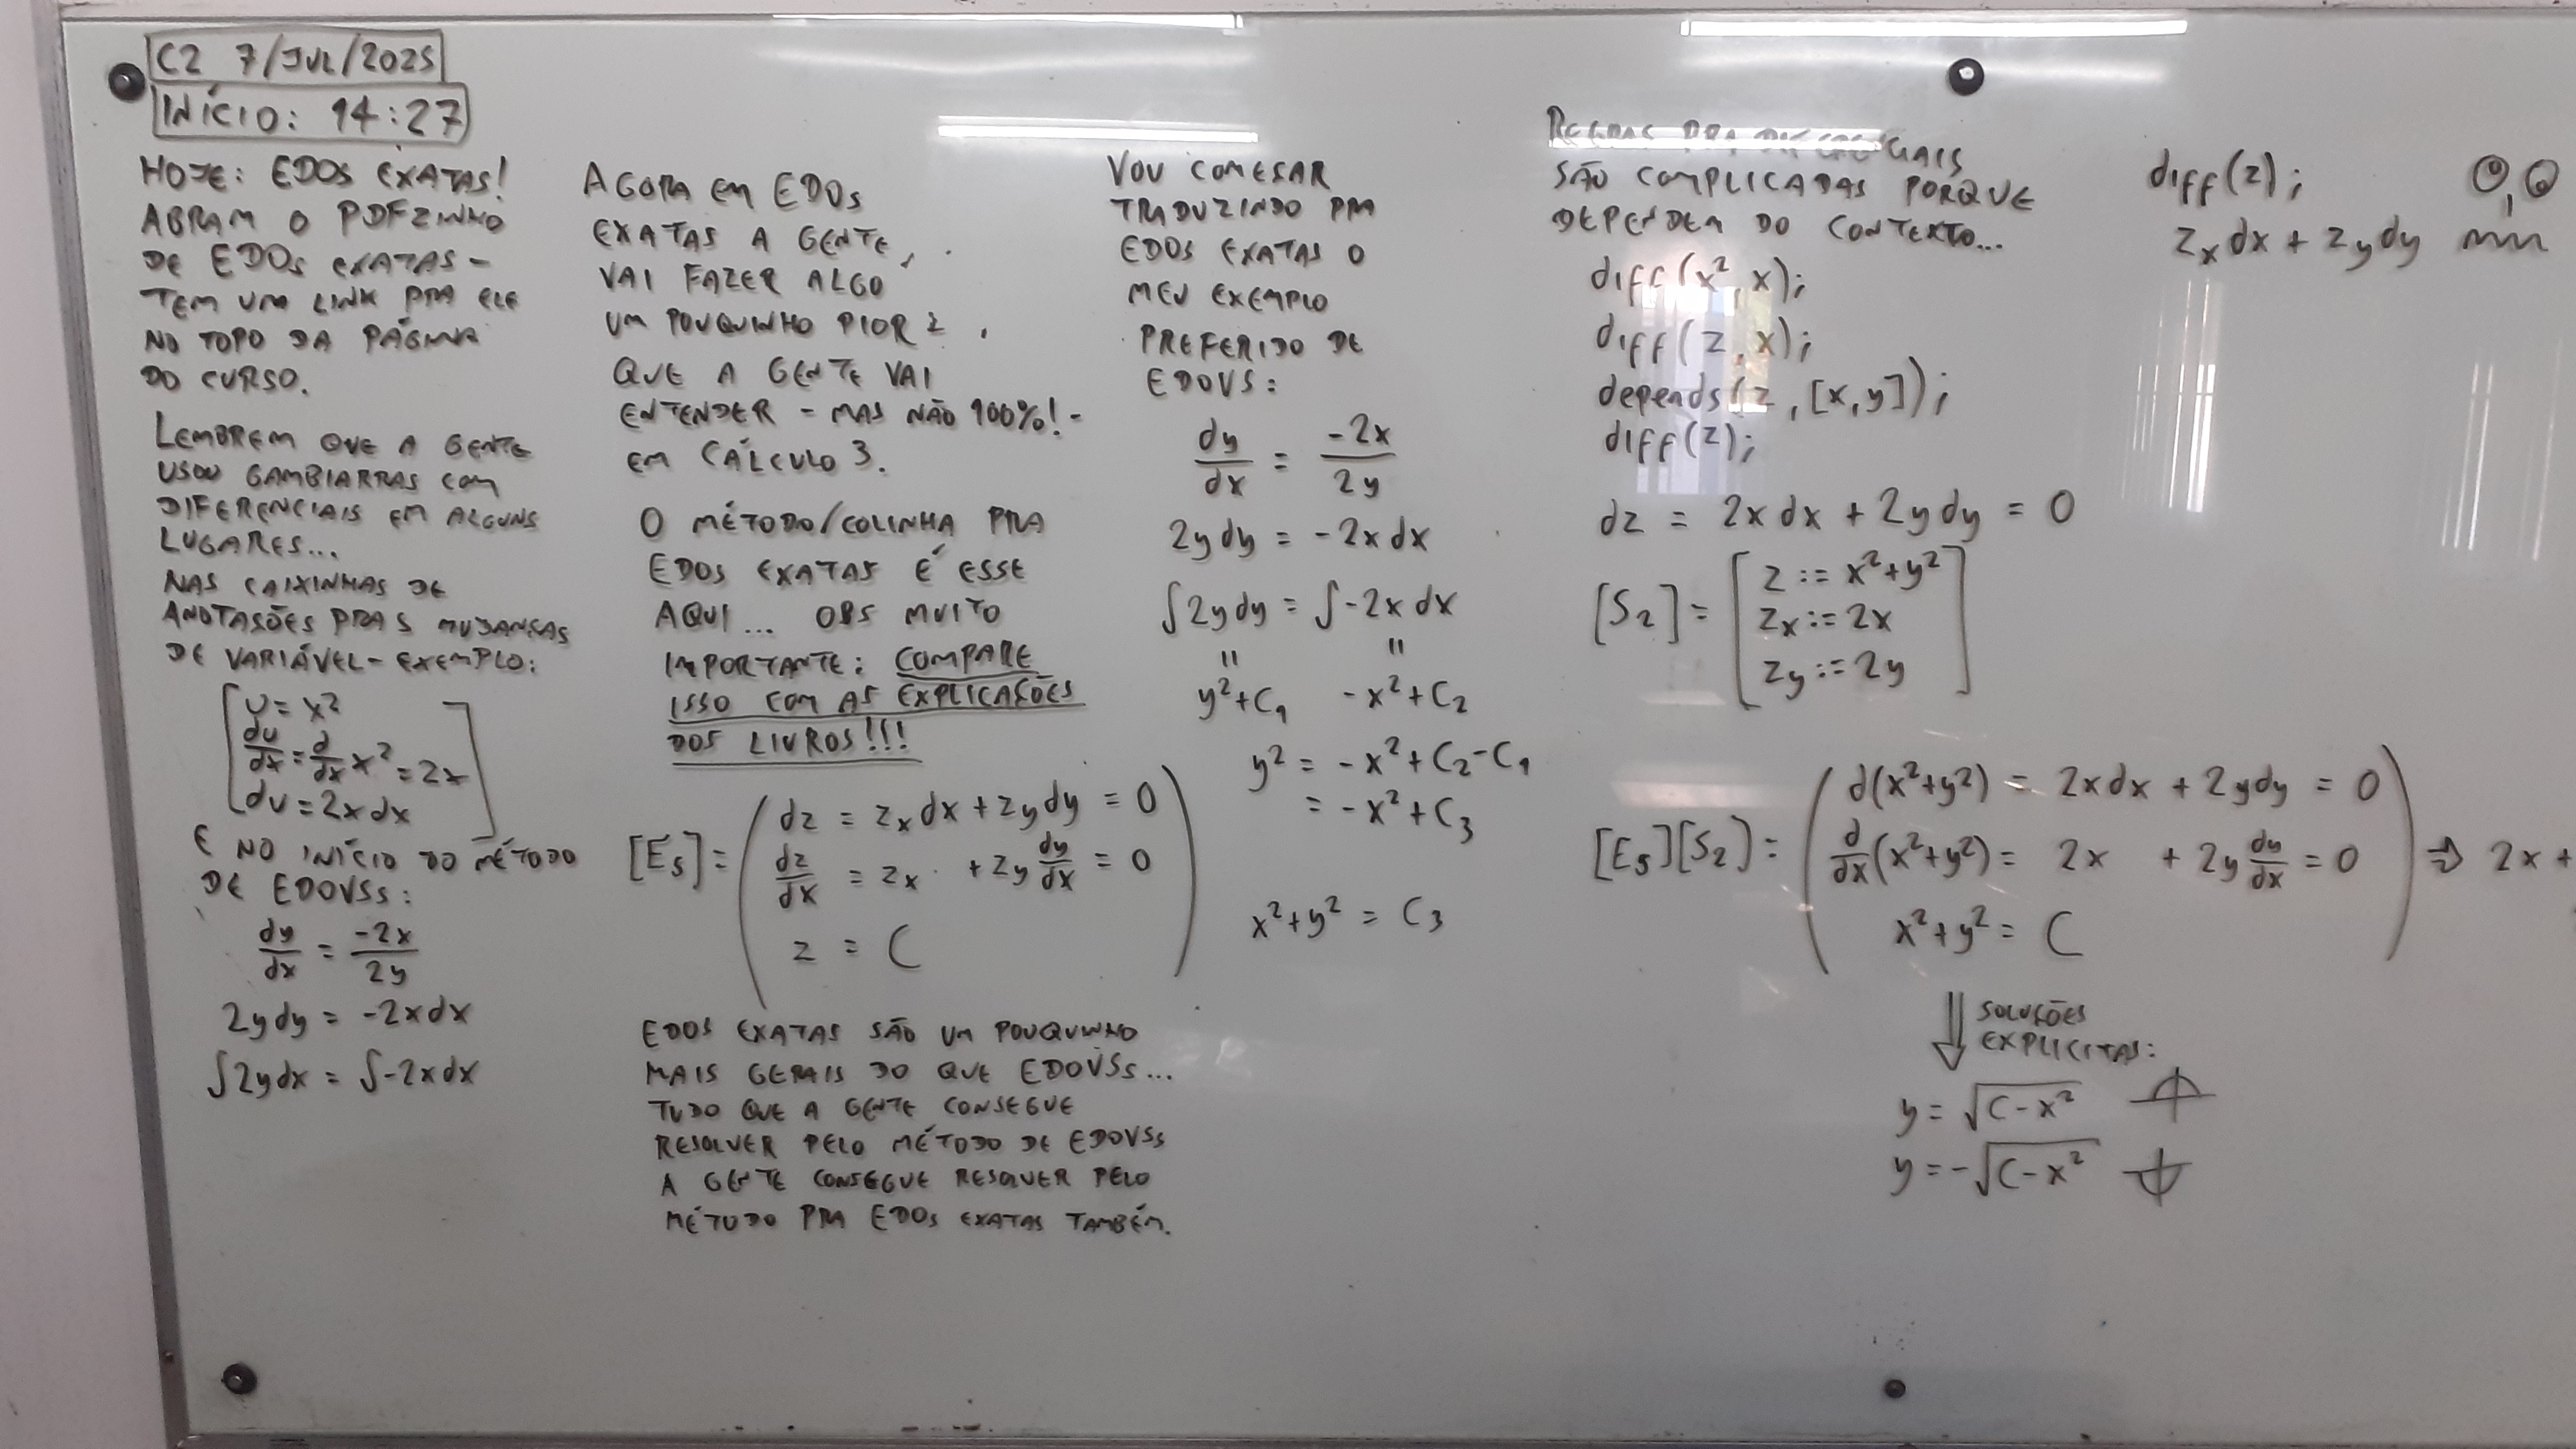 C2 7/JUL/2025
INÍCIO: 14:27
HOJE: EDOS EXATAS!
ABRAM O PDFZINHO
DE EDOS EXATAS -
TEM UM LINK PRA ELE
NO TOPO DA PÁGINA
DO CURSO.
LEMBREM QUE A GENTE
USOU GAMBIARRAS COM
DIFERENCIAIS EM ALGUNS
LUGARES...
NAS CAIXINHAS DE
ANOTAÇÕES PRAS MUDANÇAS
DE VARIÁVEL - EXEMPLO:
[u = x²
du/dx = d/dx x² = 2x
du = 2x dx]
E NO INÍCIO DO MÉTODO
DE EDOVSs:
dy/dx = -2x/2y
2y dy = -2x dx
∫2y dx = ∫-2x dx
AGORA EM EDOs
EXATAS A GENTE
VAI FAZER ALGO
UM POUQUINHO PIOR
QUE A GENTE VAI
ENTENDER - MAS NÃO 100%! -
EM CÁLCULO 3.
O MÉTODO/COLINHA PRA
EDOS EXATAS É ESSE
AQUI... OBS MUITO
IMPORTANTE: COMPARE
ISSO COM AS EXPLICAÇÕES
DOS LIVROS!!!
[E5] = (dz = zx dx + zy dy = 0
dz/dx = zx + zy dy/dx = 0
z = C)
EDOS EXATAS SÃO UM POUQUINHO
MAIS GERAIS DO QUE EDOVSs...
TUDO QUE A GENTE CONSEGUE
RESOLVER PELO MÉTODO DE EDOVSs
A GENTE CONSEGUE RESOLVER PELO
MÉTODO PRA EDOS EXATAS TAMBÉM.
VOU COMEÇAR
TRADUZINDO PRA
EDOS EXATAS O
MEU EXEMPLO
PREFERIDO DE
EDOVS:
dy/dx = -2x/2y
2y dy = -2x dx
∫2y dy = ∫-2x dx
" "
y²+C1 -x²+C2
y² = -x²+C2-C1
= -x²+C3
x²+y² = C3
REGRAS PRA DIFERENCIAIS
SÃO COMPLICADAS PORQUE
DEPENDEM DO CONTEXTO...
diff(x², x);
diff(z, x);
depends(z, [x,y]);
diff(z);
dz = 2x dx + 2y dy = 0
[S2] = [z := x²+y²
zx := 2x
zy := 2y]
[E5][S2] = (d(x²+y²) = 2x dx + 2y dy = 0
d/dx(x²+y²) = 2x + 2y dy/dx = 0
x²+y² = C) ⇒ 2x +
⇓ SOLUÇÕES
EXPLICITAS:
y = √(C-x²)
y = -√(C-x²)
diff(z);
zx dx + zy dy